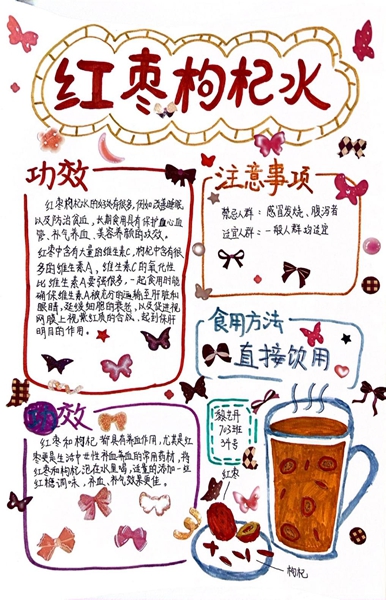 红枣枸杞水
功效
红枣枸杞水的好处有很多,例如改善睡眠
以及防治贫血,长期食用具有保护血心血
管、补气养血、美容养颜的功效。
红枣中含有大量的维生素C,枸杞中含有很
多的维生素A,维生素C的氧化性
比维生素A要强很多,一起食用时能
确保维生素A被充分的运输至肝脏和
眼睛,延缓细胞的衰老,以及促进视
网膜上视紫红质的合成,起到保肝
明目的作用。
注意事项
禁忌人群:感冒发烧、腹泻者
适宜人群:一般人群均适宜
食用方法
直接饮用
功效
红枣和枸杞都具有养血作用,尤其是红
枣更是生活中女性补血养血的常用药材,将
红枣和枸杞泡在水里喝,适量的添加一些
红糖调味,补血、补气效果更佳。
703班
34号
红枣
枸杞